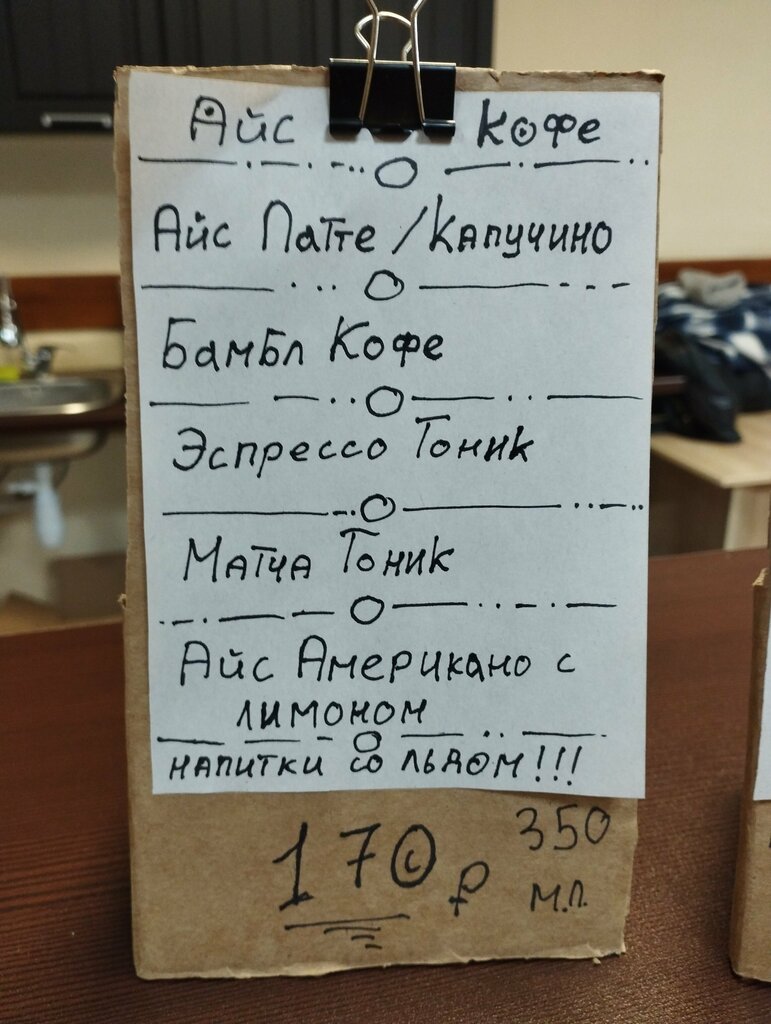 Айс кофе
Айс Латте / Капучино
Бамбл Кофе
Эспрессо Тоник
Матча Тоник
Айс Американо с
лимоном
напитки со льдом!!!
170 ₽
350
м.л.